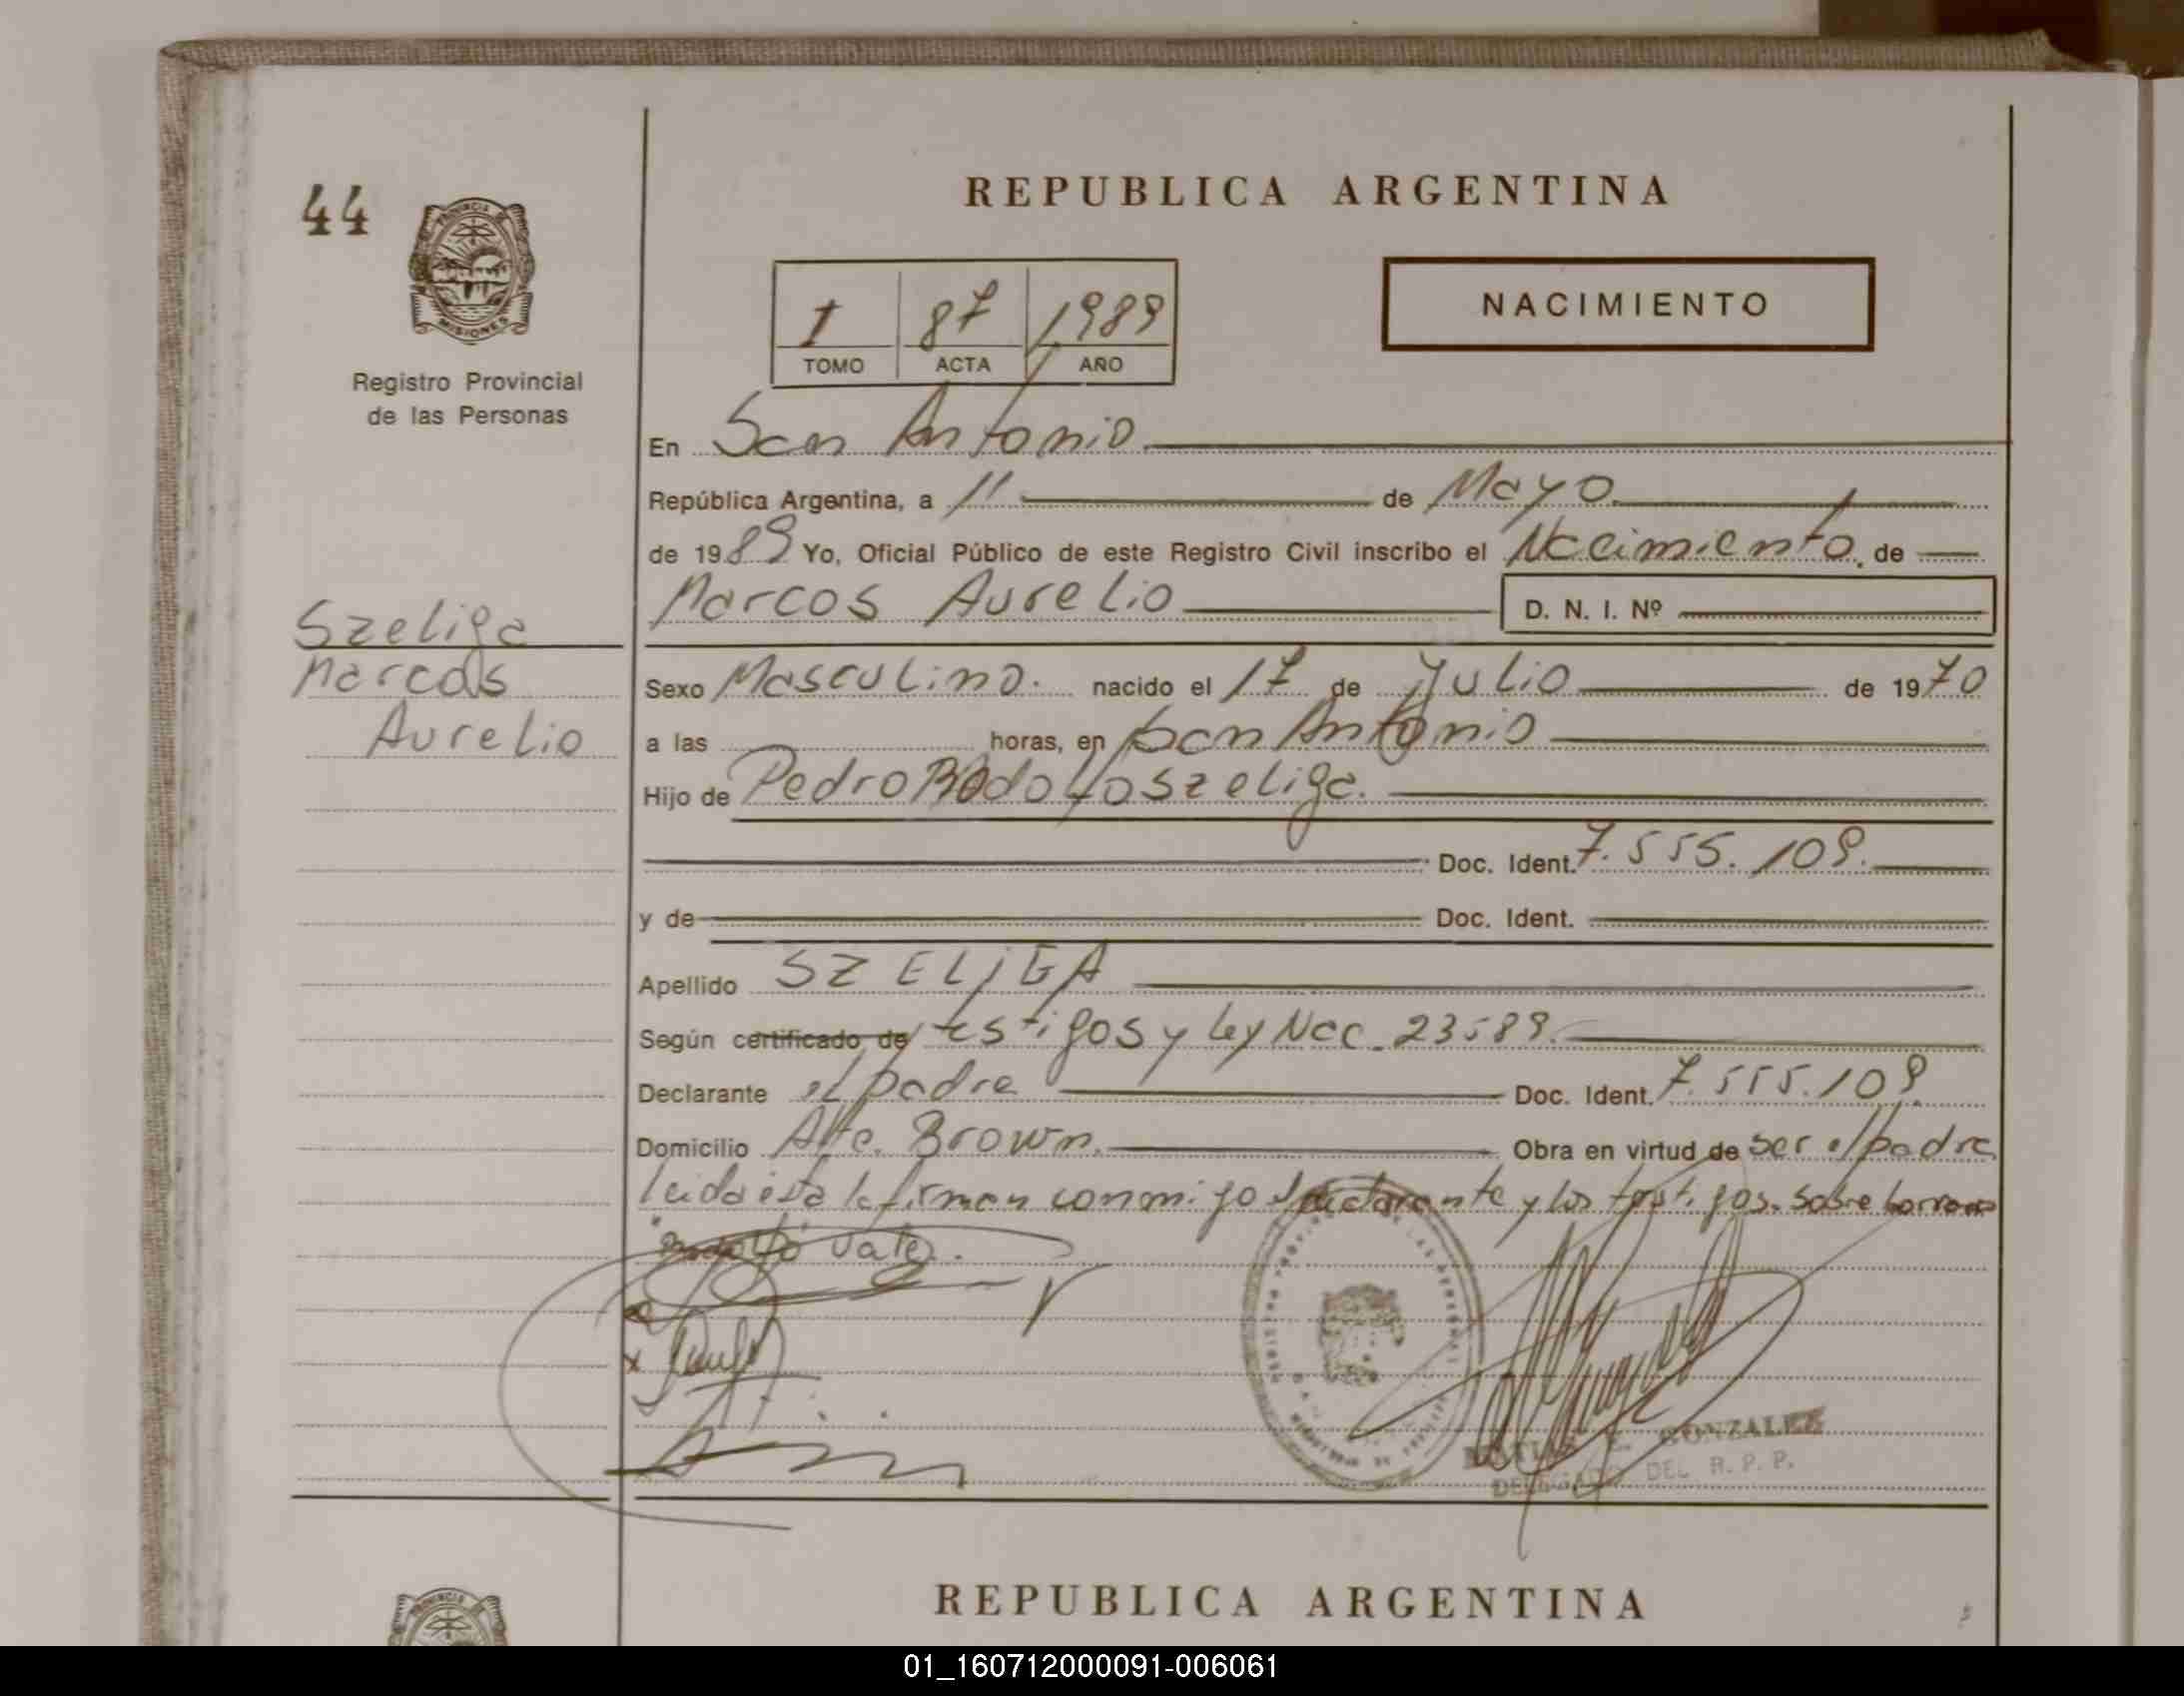 44
PROVINCIA DE
MISIONES
Registro Provincial
de las Personas
REPUBLICA ARGENTINA
1 87 1989
TOMO ACTA AÑO
NACIMIENTO
En San Antonio
República Argentina, a 11 de Mayo
de 1989 Yo, Oficial Público de este Registro Civil inscribo el Nacimiento de
Marcos Aurelio D. N. I. Nº
Szeliga
Marcos
Aurelio
Sexo Masculino. nacido el 17 de Julio de 1970
a las horas, en San Antonio
Hijo de Pedro Rodolfo Szeliga.
Doc. Ident. 7.555.109.
y de Doc. Ident.
Apellido SZELIGA
Según certificado de testigos y Ley Nac. 23589.
Declarante el padre Doc. Ident. 7.555.109.
Domicilio Alte. Brown. Obra en virtud de ser el padre
leida esta la firman conmigo el declarante y los testigos. Sobre borrado
"Rodolfo Vale.
GONZALEZ
DELEGADO DEL R. P. P.
REPUBLICA ARGENTINA
01_160712000091-006061